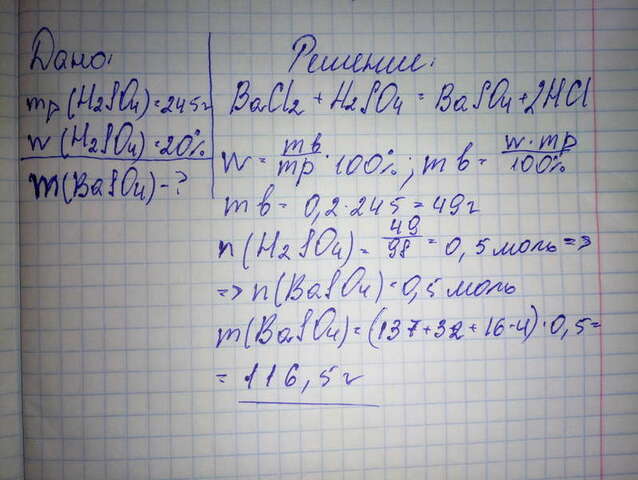 Дано:
mp (H2SO4) = 245 г
w (H2SO4) = 20%
m(BaSO4) - ?
Решение:
BaCl2 + H2SO4 = BaSO4 + 2HCl
w = mв/mp · 100%; mв = w · mp/100%
mв = 0,2 · 245 = 49 г
n(H2SO4) = 49/98 = 0,5 моль =>
=> n(BaSO4) = 0,5 моль
m(BaSO4) = (137 + 32 + 16 · 4) · 0,5 =
= 116,5 г